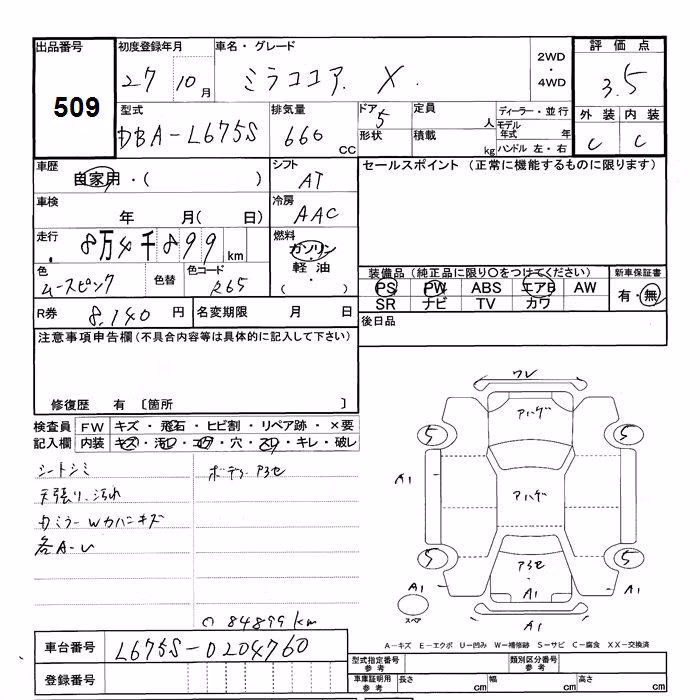 出品番号
509
初度登録年月
27 10月
車名・グレード
ミラココア X
2WD
・
4WD
評価点
3.5
型式
DBA-L675S
排気量
660 CC
ドア 5
形状
定員 人
積載 kg
ディーラー・並行
モデル年式 年
ハンドル 左・右
外装 内装
C C
車歴
自家用・( )
シフト
AT
セールスポイント (正常に機能するものに限ります)
車検
年 月( 日)
冷房
AAC
走行
8万4千899 km
燃料
ガソリン
・
軽油
( )
色
ムースピンク
色替
色コード
R65
装備品(純正品に限り○をつけてください)
PS PW ABS エアB AW
SR ナビ TV カワ
新車保証書
有・無
R券 8,140 円
名変期限 月 日
後日品
注意事項申告欄(不具合内容等は具体的に記入して下さい)
修復歴 有 〔箇所 〕
検査員 FW キズ・飛石・ヒビ割・リペア跡・×要
記入欄 内装 キズ・汚レ・コゲ・穴・スレ・キレ・破レ
シートシミ
天張り、汚れ
各A-U
ボデーアセ
○ 84899km
ワレ
アハゲ
5 5
A1
アハゲ
A1
5 5
アアセ
A1 A1 A1
スペア
A1
車台番号 L675S-0204760
登録番号
A-キズ E-エクボ U-凹み W-補修跡 S-サビ C-腐食 XX-交換済
型式指定番号 参考
類別区分番号 参考
車庫証明用 参考
長さ cm
幅 cm
高さ cm